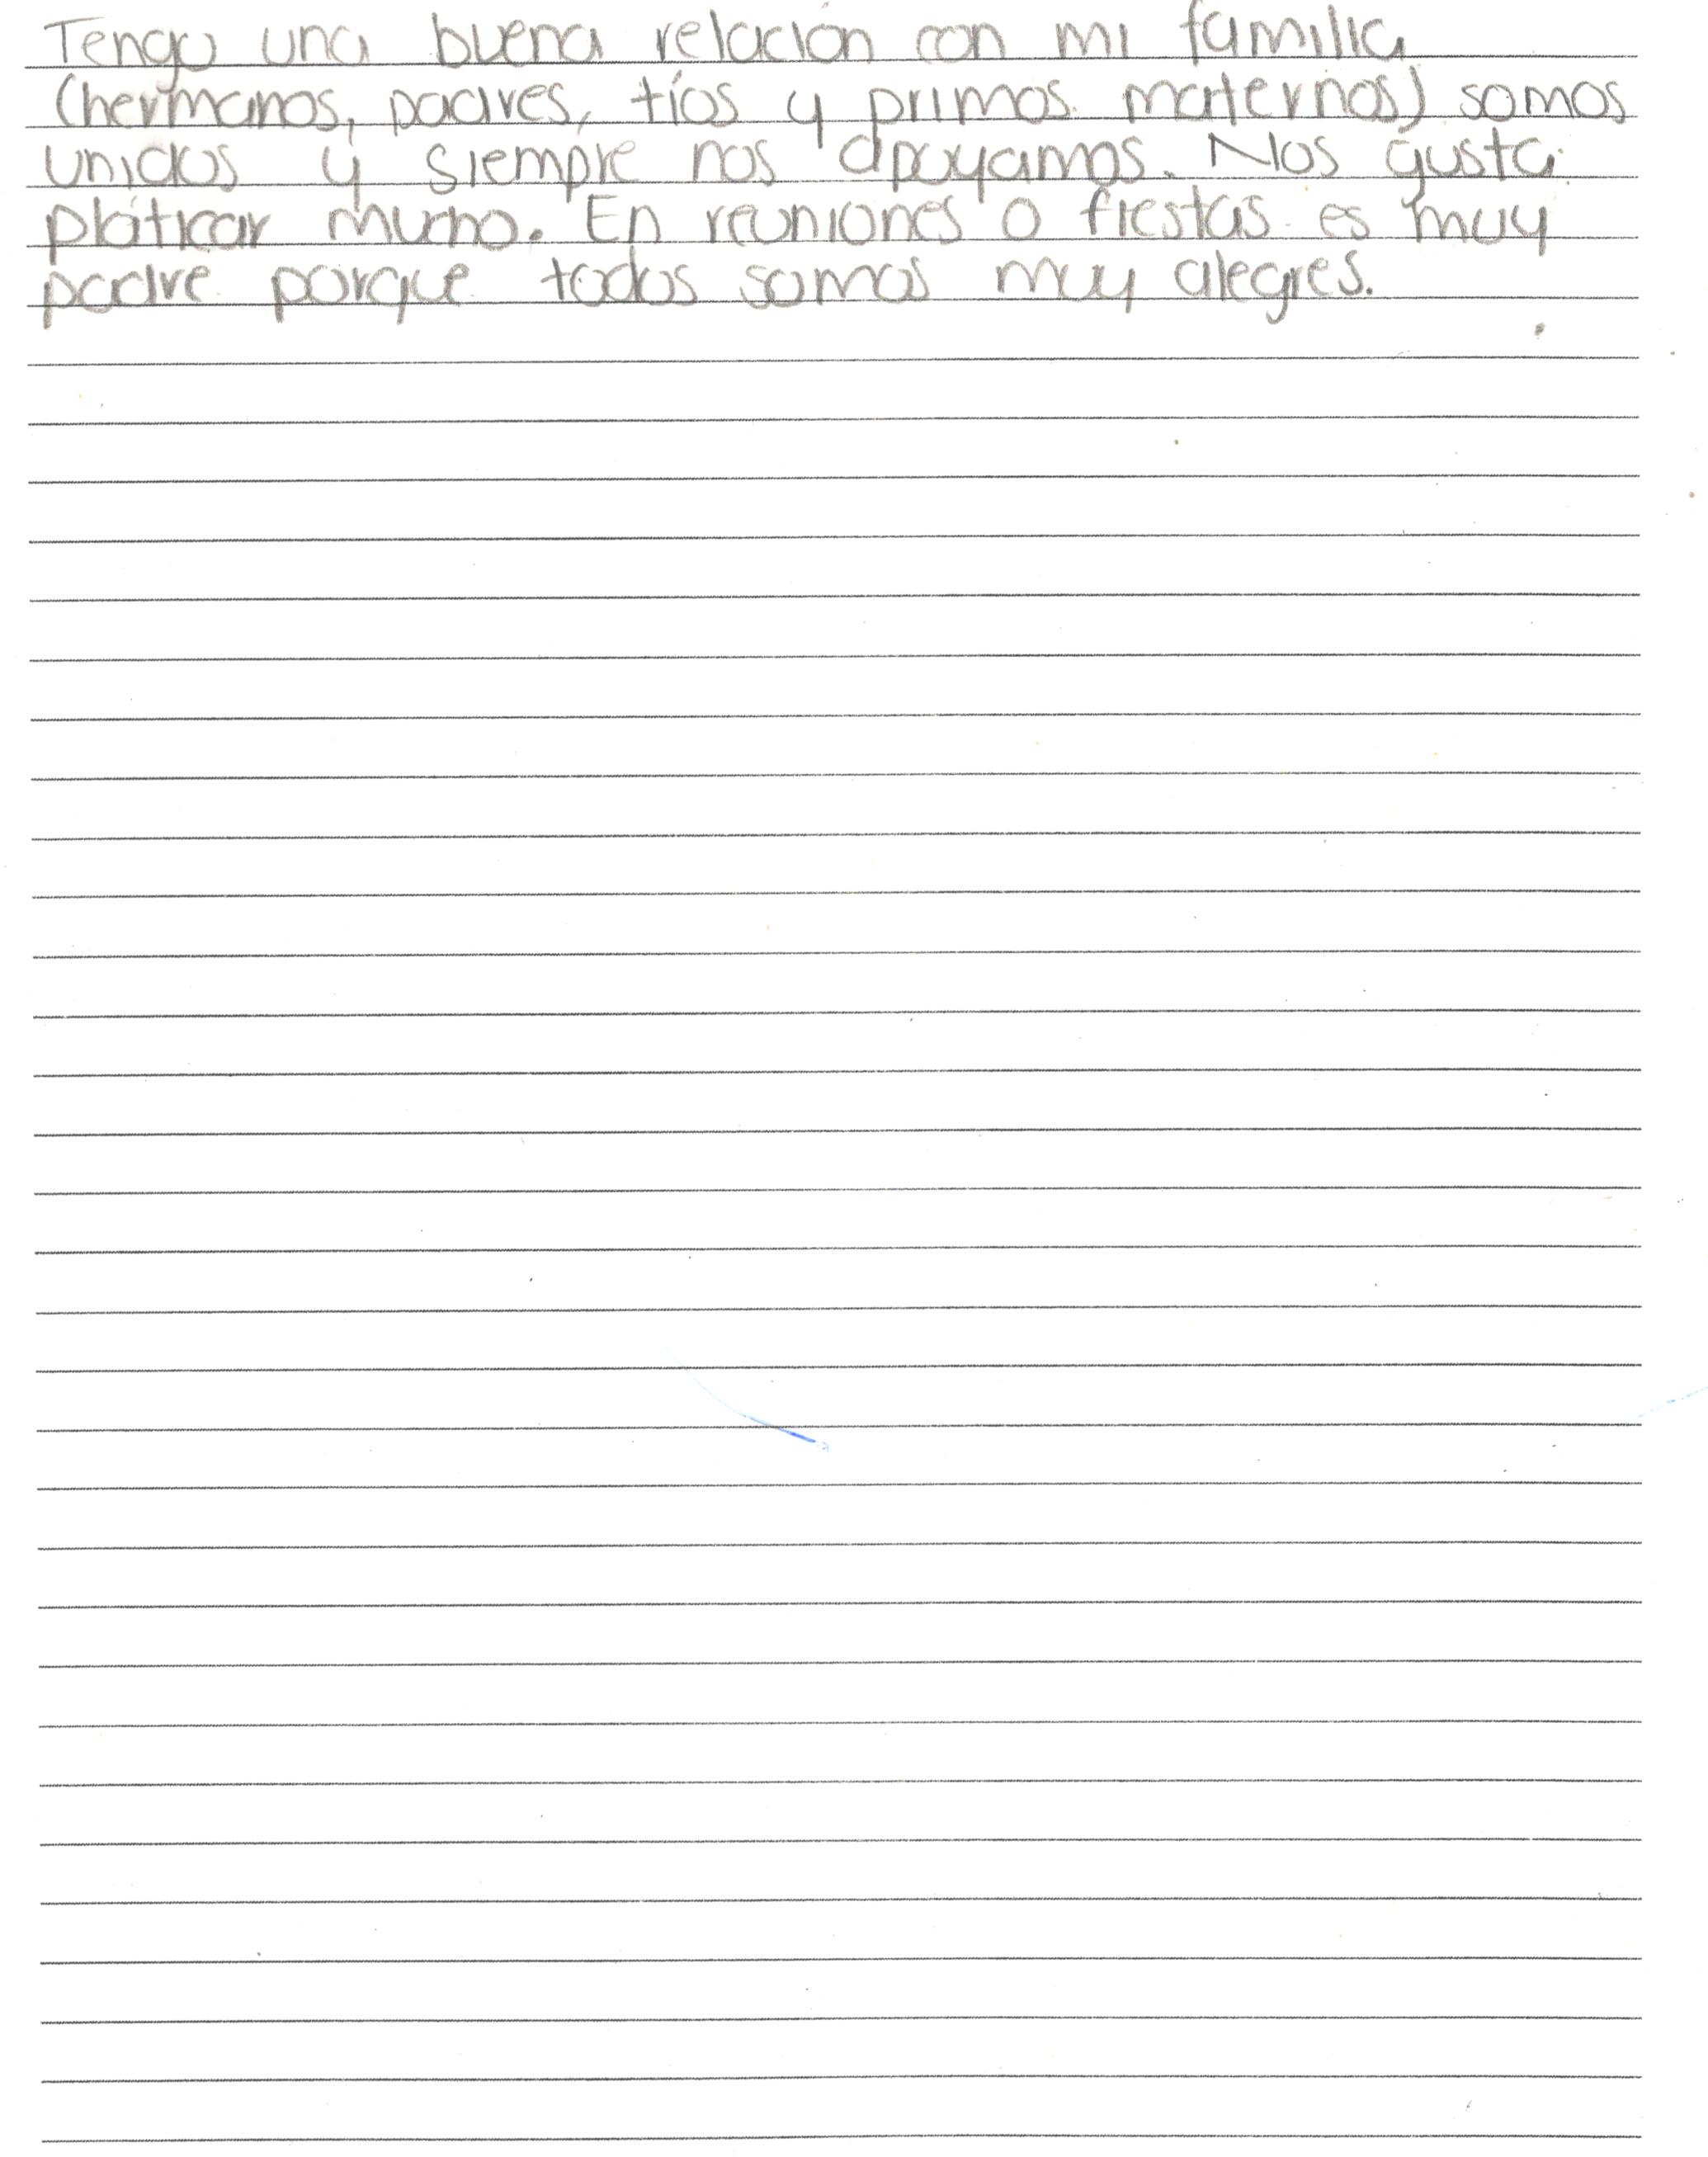 Tengo una buena relación con mi familia
(hermanos, padres, tíos y primos maternos) somos
unidos y siempre nos apoyamos. Nos gusta
platicar mucho. En reuniones o fiestas es muy
padre porque todos somos muy alegres.